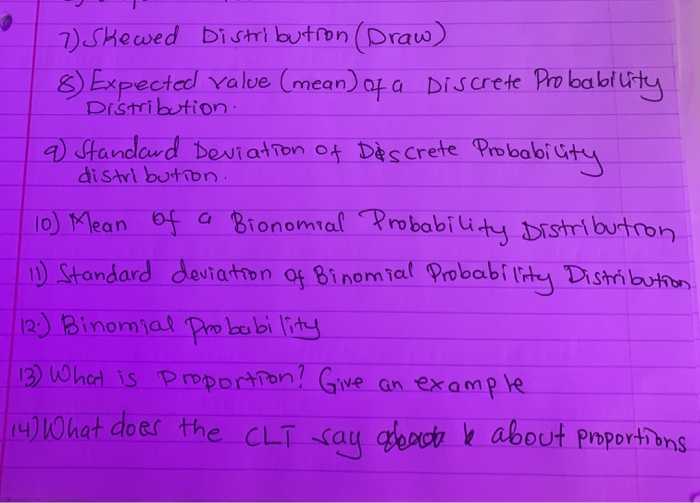 7) Skewed Distribution (Draw)
8) Expected value (mean) of a Discrete Probability
Distribution.
9) Standard Deviation of Discrete Probability
distribution.
10) Mean of a Bionomial Probability Distribution
11) Standard deviation of Binomial Probability Distribution
12) Binomial Probability
13) What is Proportion? Give an example
14) What does the CLT say about proportions